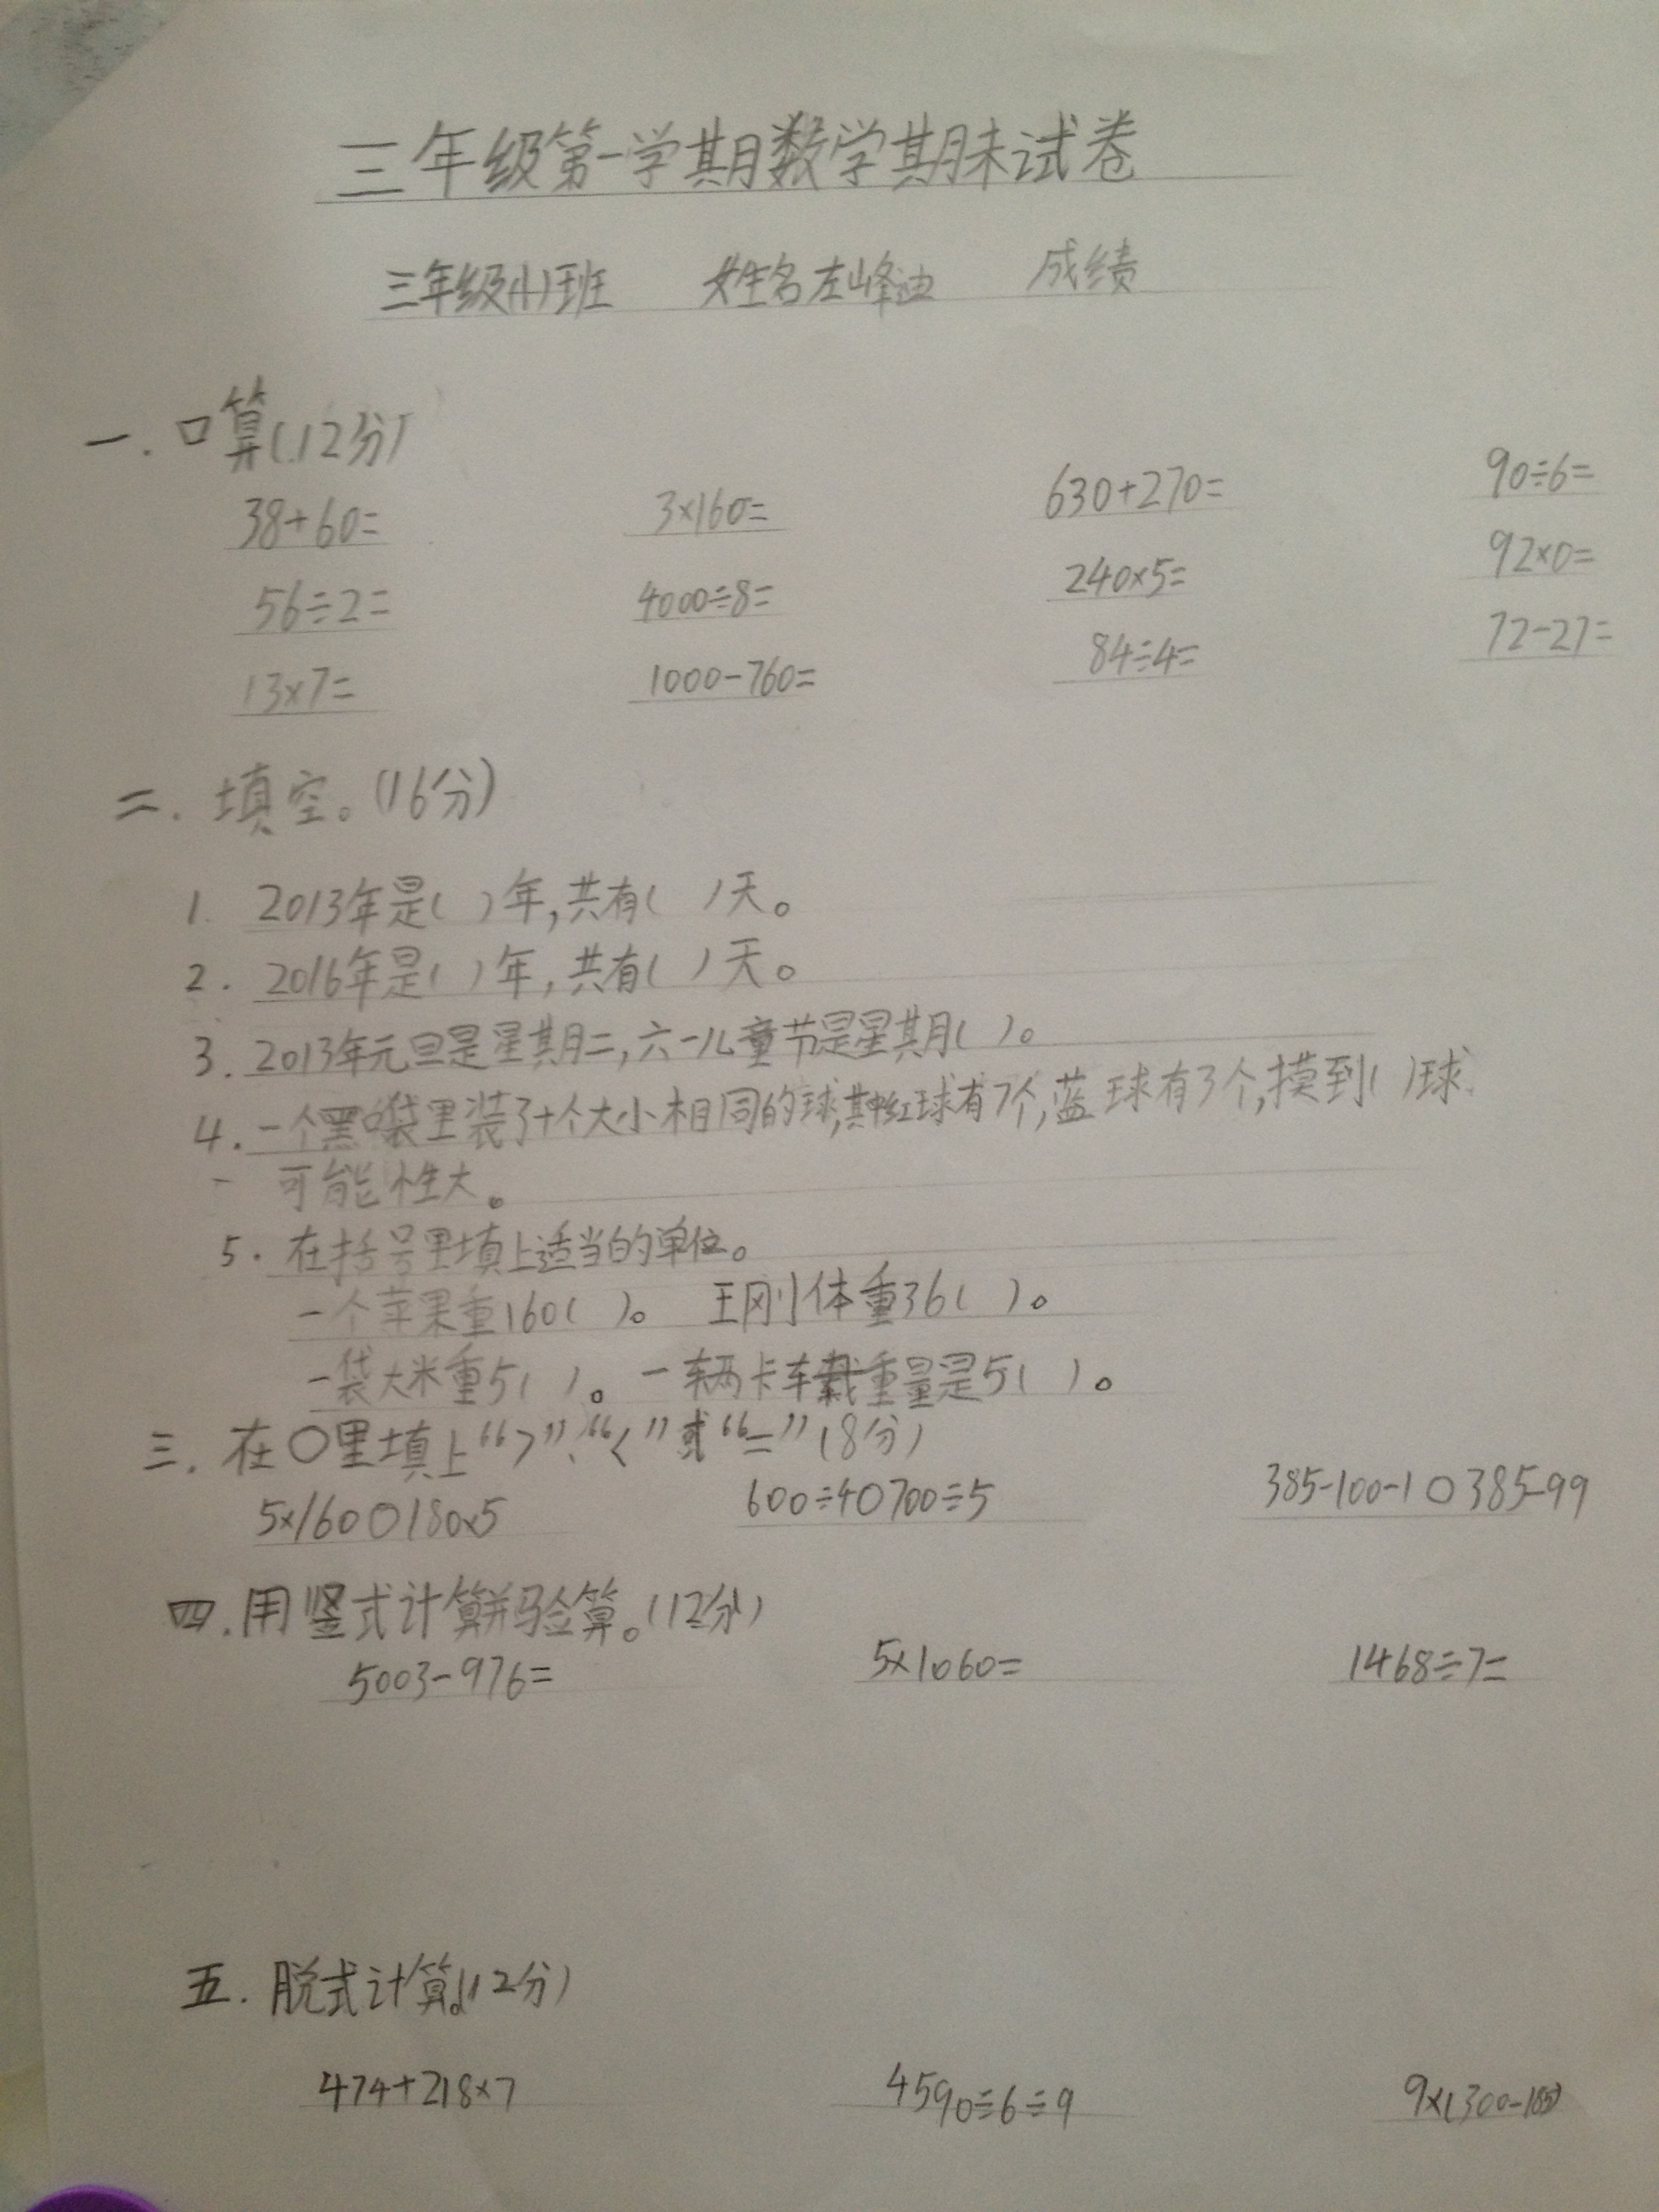 三年级第一学期数学期末试卷
三年级(1)班 姓名左峰迪 成绩
一.口算(12分)
38+60= 3×160= 630+270= 90÷6=
56÷2= 4000÷8= 240×5= 92×0=
13×7= 1000-760= 84÷4= 72-27=
二.填空。(16分)
1. 2013年是( )年,共有( )天。
2. 2016年是( )年,共有( )天。
3. 2013年元旦是星期二,六一儿童节是星期( )。
4. 一个黑口袋里装了十个大小相同的球,其中红球有7个,蓝球有3个,摸到( )球
可能性大。
5. 在括号里填上适当的单位。
一个苹果重160( )。 王刚体重36( )。
一袋大米重5( )。 一辆卡车载重量是5( )。
三.在○里填上“>”、“<”或“=”(8分)
5×160○180×5 600÷4○700÷5 385-100-1○385-99
四.用竖式计算并验算。(12分)
5003-976= 5×1060= 1468÷7=
五.脱式计算。(12分)
474+218×7 4590÷6÷9 9×(300-185)